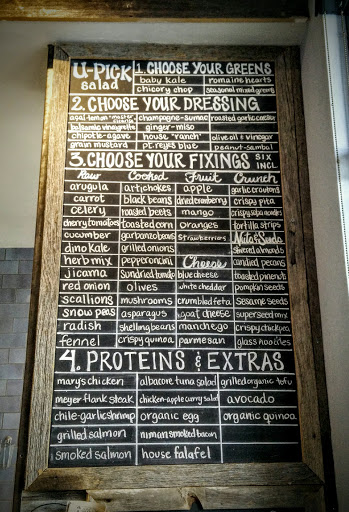 U-PICK salad
1. CHOOSE YOUR GREENS
baby kale romaine hearts
chicory chop seasonal mixed greens
2. CHOOSE YOUR DRESSING
champagne-sumac roasted garlic caesar
balsamic vinaigrette ginger-miso
chipotle-agave house "ranch" olive oil & vinegar
grain mustard pt. reyes blue peanut-sambal
3. CHOOSE YOUR FIXINGS SIX INCL.
Raw Cooked Fruit Crunch
arugula artichokes apple garlic croutons
carrot black beans dried cranberry crispy pita
celery roasted beets mango crispy soba noodles
cherry tomatoes toasted corn oranges tortilla strips
cucumber garbanzo beans strawberries Nuts & Seeds
dino kale grilled onions slivered almonds
herb mix pepperoncini Cheese candied pecans
jicama sundried tomato blue cheese toasted pinenuts
red onion olives white cheddar pumpkin seeds
scallions mushrooms crumbled feta sesame seeds
snow peas asparagus goat cheese superseed mix
radish shelling beans manchego crispy chickpea
fennel crispy quinoa parmesan glass noodles
4. PROTEINS & EXTRAS
mary's chicken albacore tuna salad grilled organic tofu
meyer flank steak chicken-apple curry salad avocado
chile-garlic shrimp organic egg organic quinoa
grilled salmon niman smoked bacon
smoked salmon house falafel